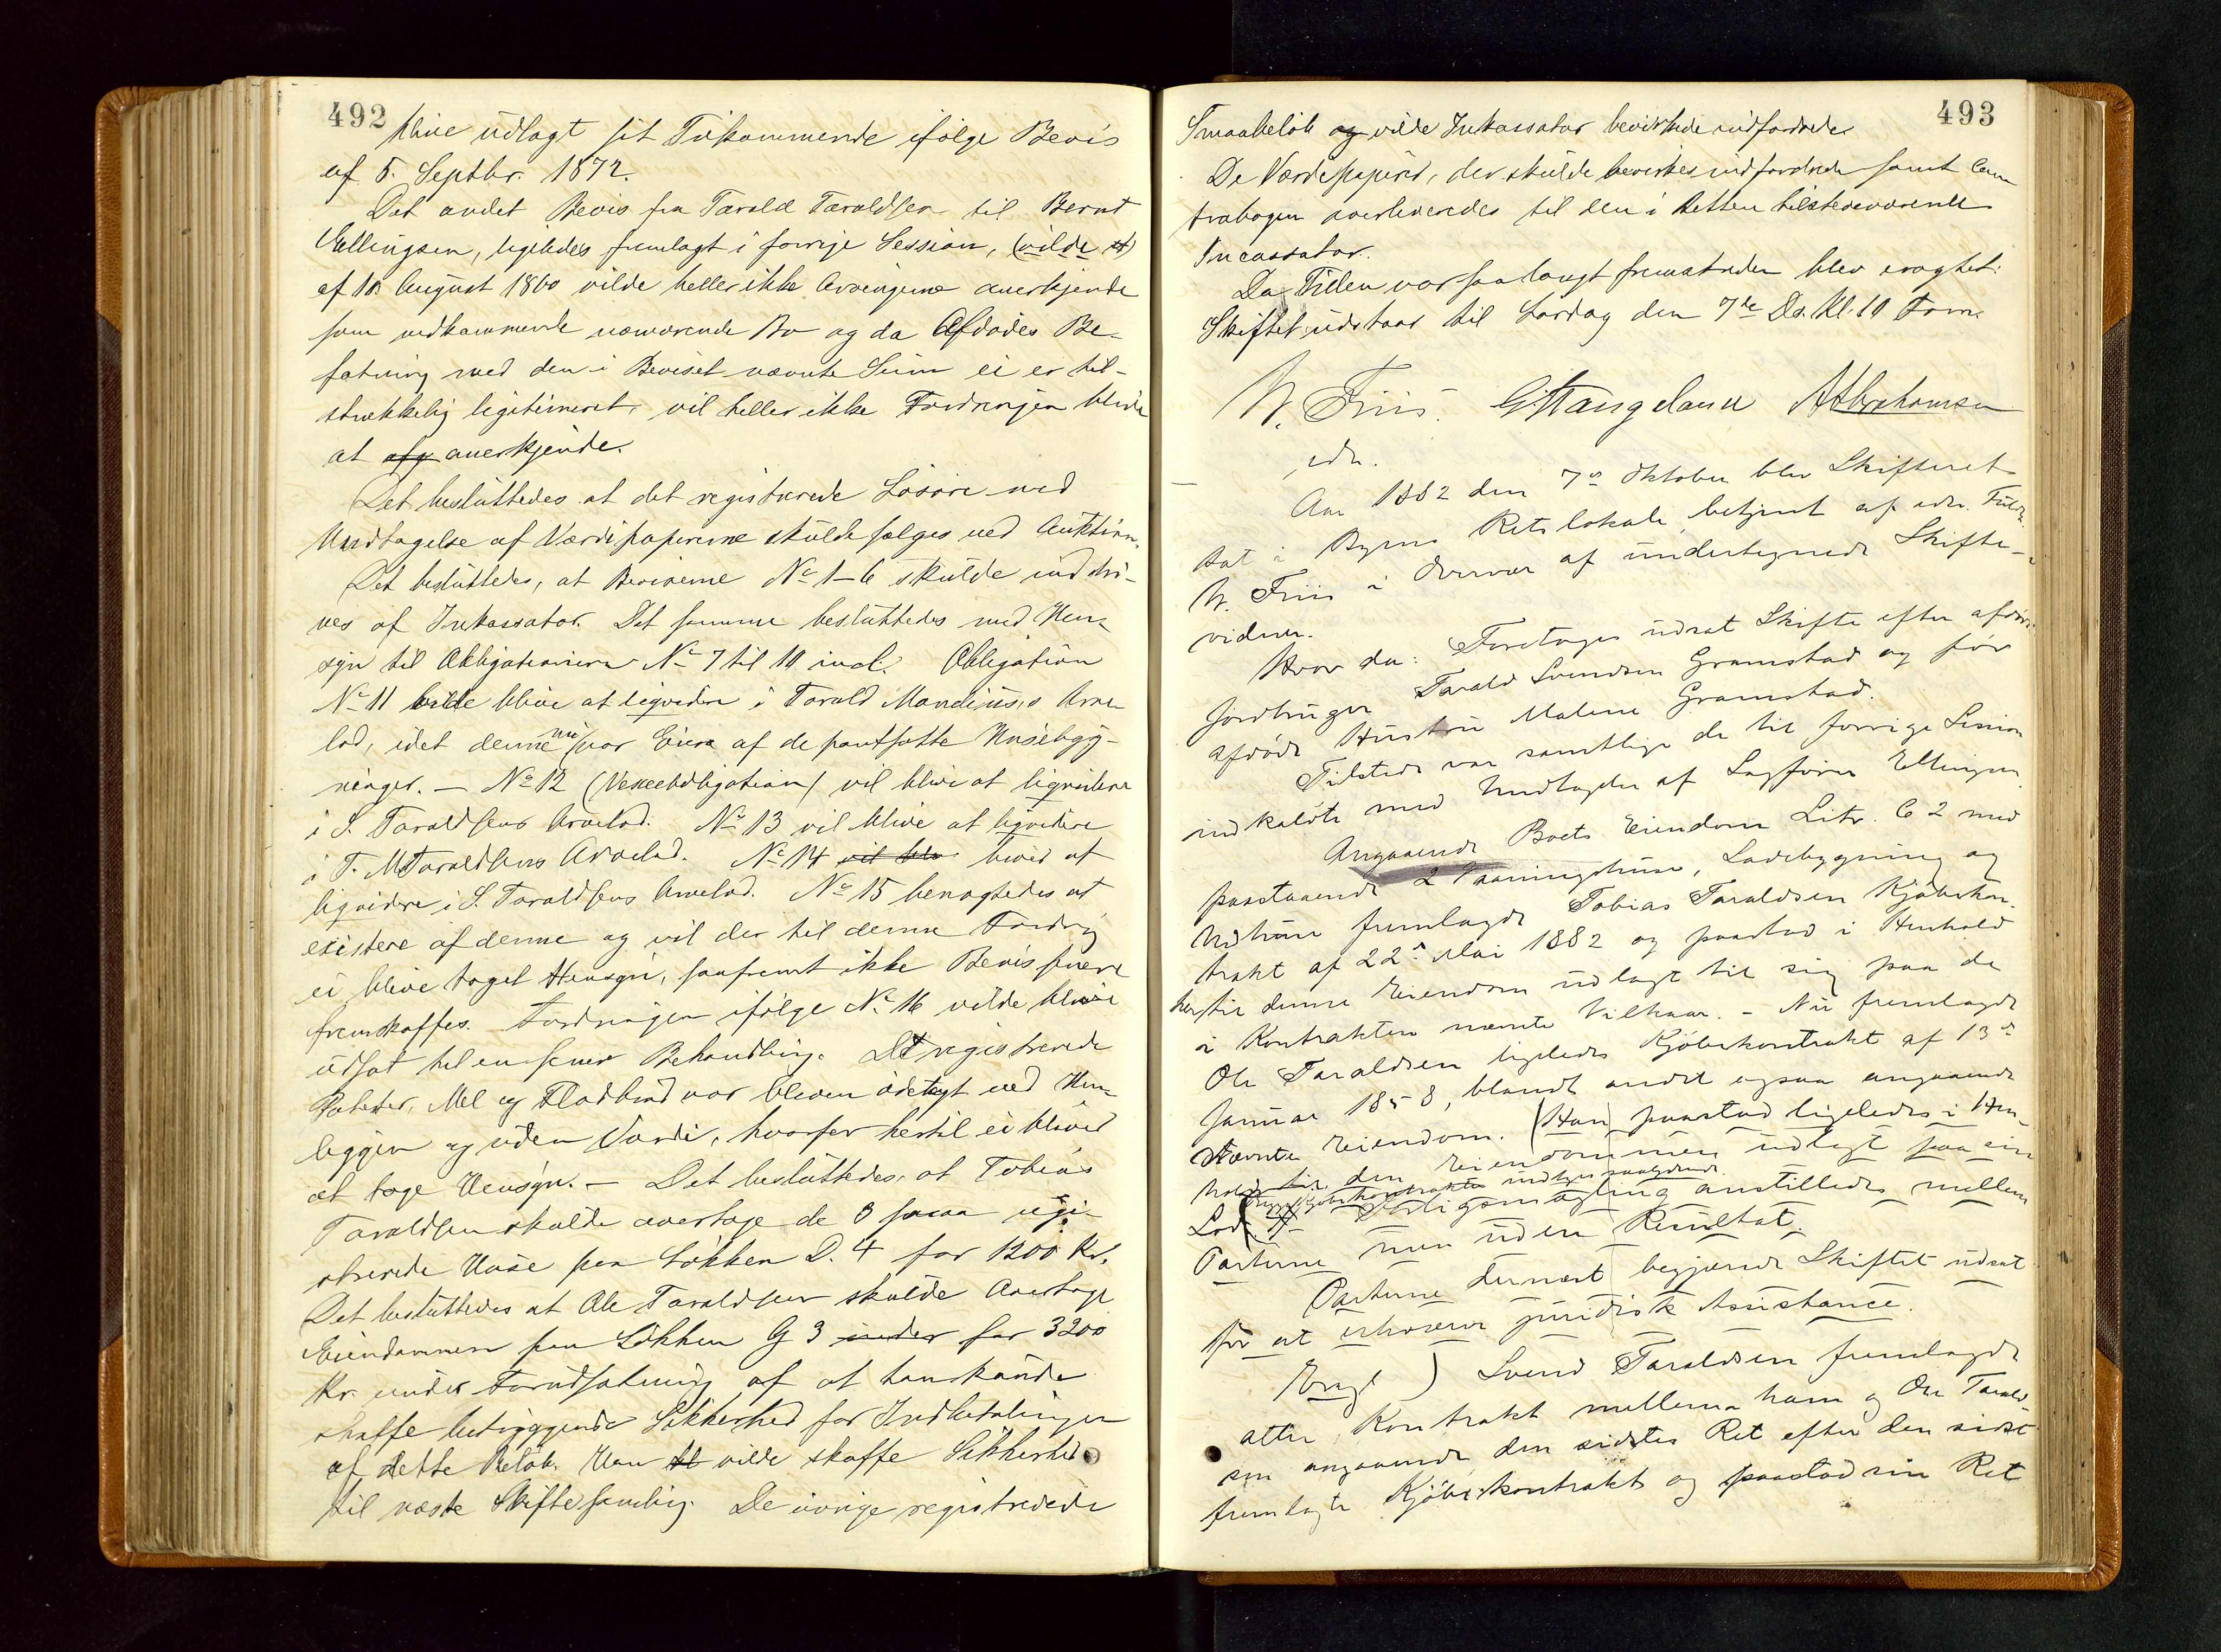 492
blive udlagt sit Tilkommende ifölge Bevis
af 5. Septbr. 1872.
Det andet Bevis fra Tarald Taraldsen til Bernt
Ellingsen, ligeledes fremlagt i forrige Session, (vilde
af 18 August 1860 vilde heller ikke Arvingerne anerkjende
som vedkommende nærværende Bo og da Afdødes Be-
fatning med den i Beviset nævnte Sum ei er til-
strækkelig legitimeret, vil heller ikke Fordringen blive
at afg anerkjende.
Det besluttedes at det registrerede Lösöre med
Undtagelse af Værdipapirerne skulde sælges ved Auktion.
Det besluttedes, at Beviserne No 1-6 skulde inddri-
ves af Inkassator. Det samme besluttedes med Hen-
syn til Obligationerne No 7 til 10 incl. Obligation
No 11 vilde blive at liqvidere i Tarald Mandius's Arve-
lod, idet denne nu var Eier af de pantsatte Husebyg-
ninger. - No 12 (Vexelobligation) vil blive at liqvidere
i S. Taraldsens Arvelod. No 13 vil blive at liqvidere
i T. M Taraldsens Arvelod. No 14 vil blv bliver at
liqvidere i S. Taraldsens Arvelod. No 15 benægtedes at
existere af denne og vil der til denne Fordring
ei blive taget Hensyn, saafremt ikke Bevis
fremskaffes. Fordringen ifölge No 16 vilde blive
udsat til en senere Behandling. Det registrerede
Poteter, Mel og Fladbröd var bleven ödelagt ved Hen-
liggen og uden Værdi, hvorfor hertil ei bliver
at tage Hensyn. - Det besluttedes, at Tobias
Taraldsen skulde overtage de 3 smaa regi-
strerede Huse paa Lökken D. 4 for 1200 Kr.
Det besluttedes at Ole Taraldsen skulde overtage
Eiendommen paa Lökken G 3 under for 3200
Kr. under Forudsætning af at han kunde
skaffe betryggende Sikkerhed for Indbetalingen
af dette Belöb. Han vilde skaffe Sikkerhed
til næste Skiftesamling. De övrige registrerede
493
Smaabelöb og vilde Inkassator bevirkede indfordrede.
De Værdipapirer, der skulde bevirkes indfordrede samt Con
trabogen overleveredes til den i Retten tilstedeværende
Incassator.
Da Tiden var saa langt fremskreden blev eragtet:
Skiftet udstaar til Lørdag den 7de Ds. Kl. 10 Form.
W. Friis. G. Stangeland A Abrahamsen
edv.
Aar 1882 den 7de Oktober blev Skifteret
sat i Byens Retslokale betjent af edv. Fuldm.
W. Friis i Overvær af undertegnede Skifte-
vidner.
Hvor da: Foretoges udsat Skifte efter afdöde
Jordbruger Tarald Svendsen Gramstad og för
afdöde Hustru Malene Gramstad.
Tilstede var samtlige de til forrige Session
indkaldte med Undtagelse af Sagförer Ellingsen.
Angaaende Boets Eiendom Litr. C 2 med
paastaaende 2 Vaaningshuse, Ladebygning og
Udhuse fremlagde Tobias Taraldsen Kjöbekon-
trakt af 22de Mai 1882 og paastod i Henhold
hertil denne Eiendom udlagt til sig paa de
i Kontrakten nævnte Vilkaar. - Nu fremlagde
Ole Taraldsen ligeledes Kjöbekontrakt af 13de
Januar 1858, blandt andet ogsaa angaaende
nævnte Eiendom. (Han) paastod ligeledes i Hen-
hold til den Eiendommen udlagt paa sin
Lod. Forligsmægling anstilledes mellem
Parterne men uden Resultat.
Parterne dernæst begjærede Skiftet udsat
for at erhverve juridisk Assistance.
Eragt) Svend Taraldsen fremlagde
atter Kontrakt mellem ham og Ole Tarald
sen angaaende den sidstes Ret efter den sidst
fremlagte Kjöbekontrakt og paastod sin Ret